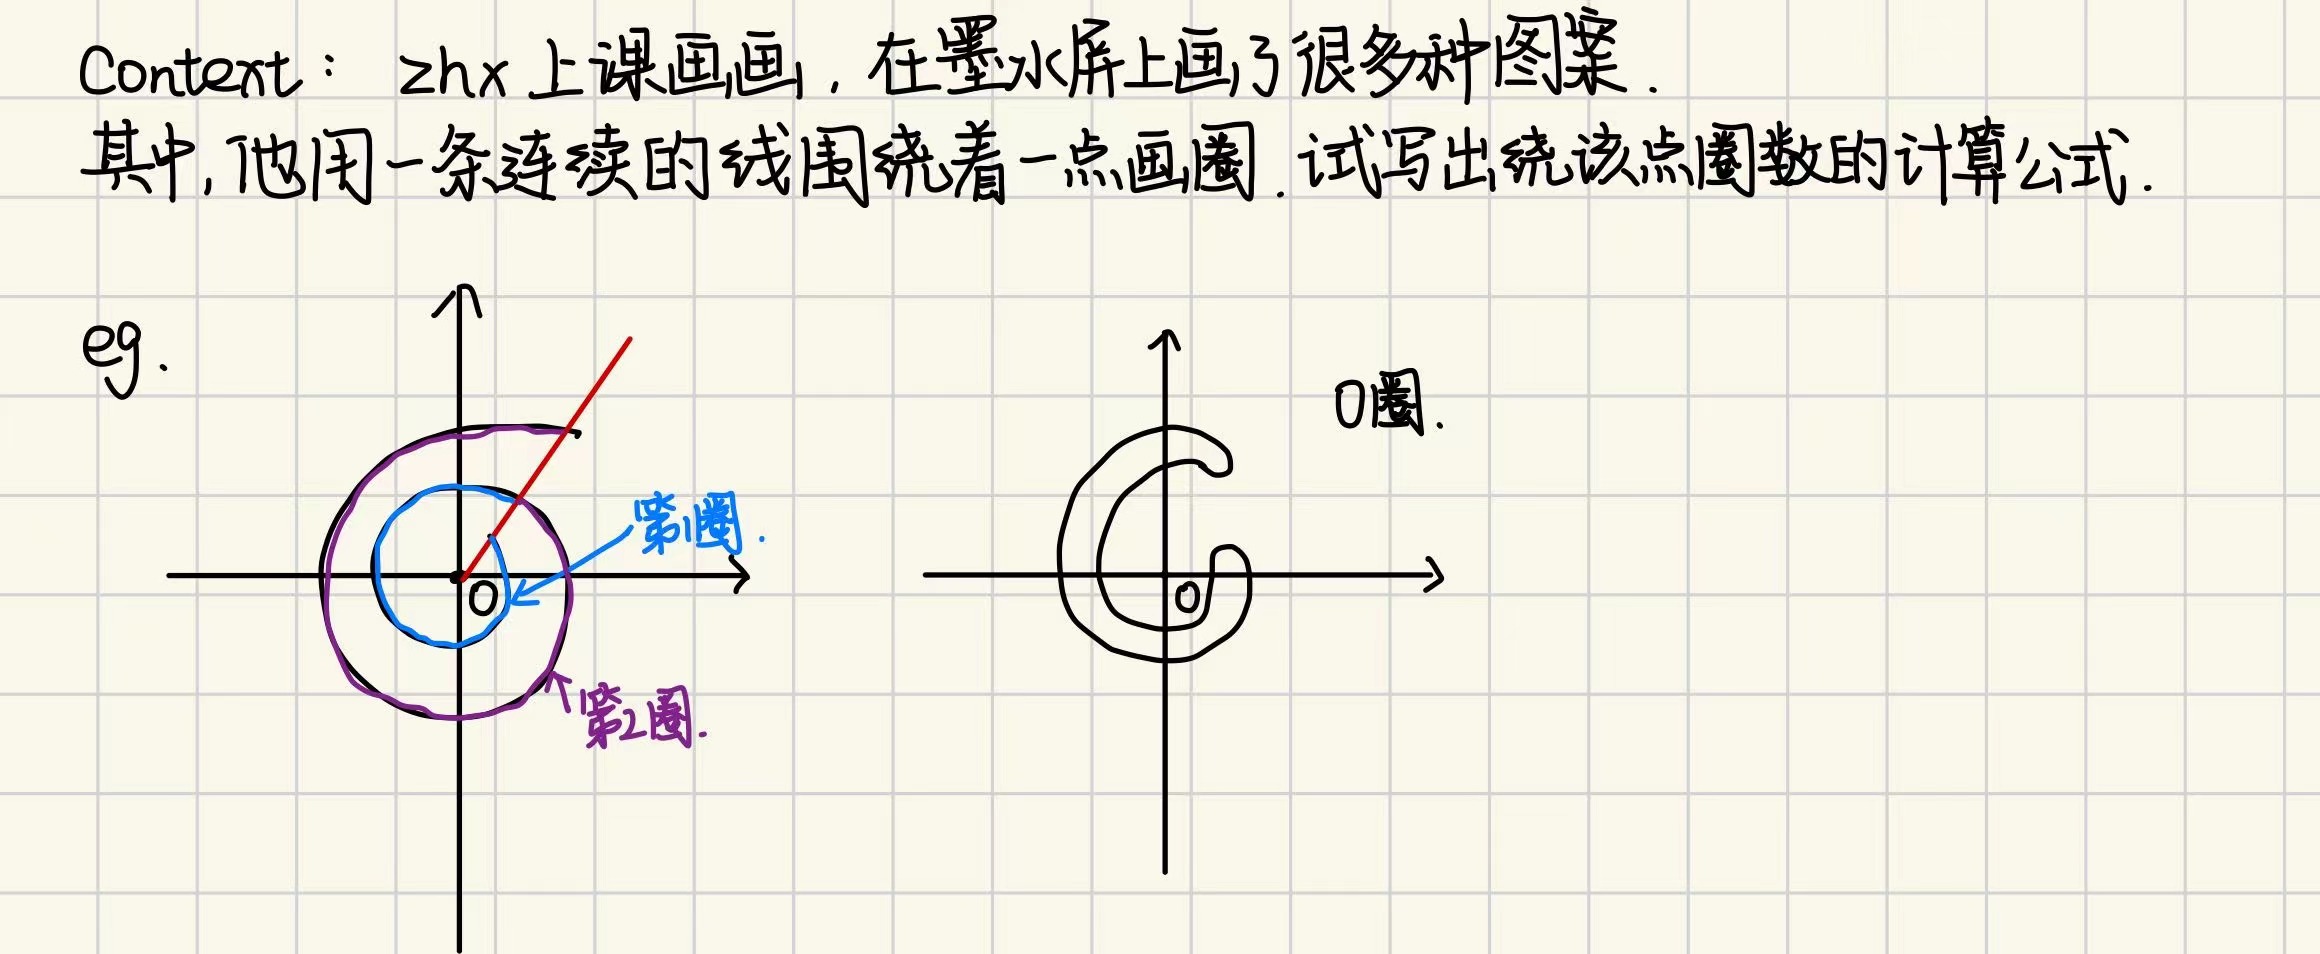 Context： zhx上课画画，在墨水屏上画了很多种图案.
其中,他用一条连续的线围绕着一点画圈.试写出绕该点圈数的计算公式.
eg.
0圈.
第1圈.
O
O
第2圈.